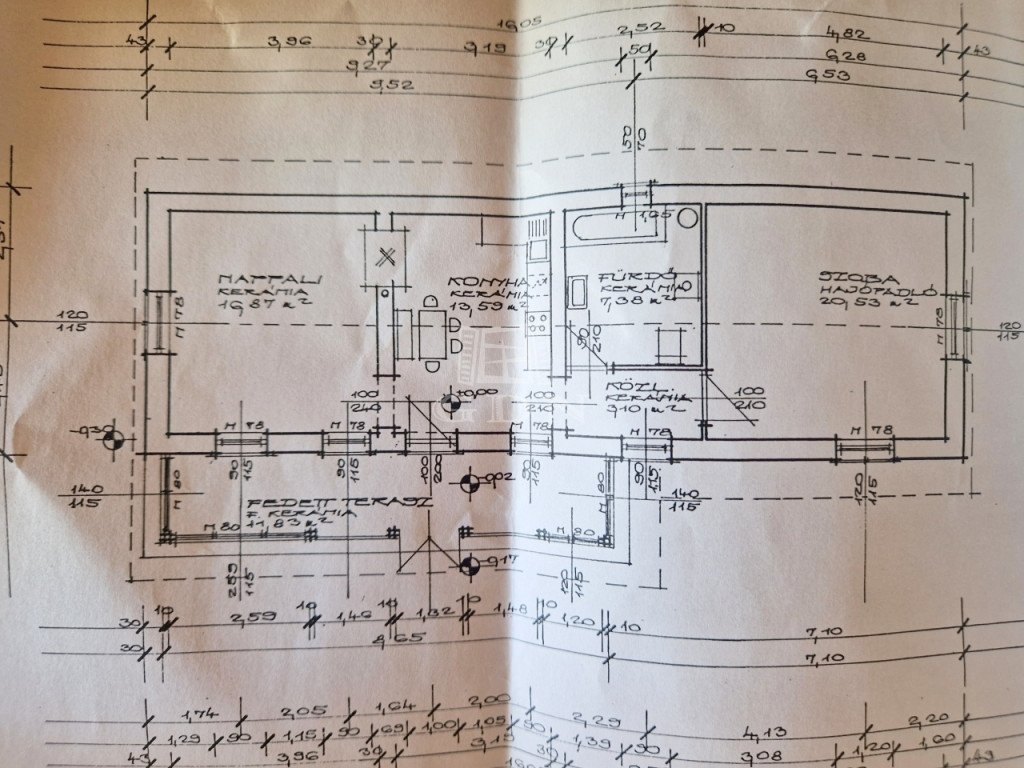 16,05
43 3,96 30 3,19 30 2,52 10 4,82 43
50
9,27 6,28
9,52 6,53
50
70
M 1,65
NAPPALI
KERÁMIA
16,87 m²
KONYHA
KERÁMIA
13,59 m²
FÜRDŐ
KERÁMIA
7,38 m²
SZOBA
HAJÓPADLÓ
20,53 m²
120
115
M 78
M 78
120
115
90
210
KÖZL.
KERÁMIA
3,10 m²
100
240
±0,00
100
210
100
210
-0,30
M 78
M 78
M 78
M 78
90
115
90
115
100
200
90
115
90
115
120
115
-0,02
140
115
M 80
FEDETT TERASZ
F. KERÁMIA
11,83 m²
M 80
140
115
M 80
M 80
-0,17
259
115
120
115
30 10 2,59 10 1,46 10 1,32 10 1,48 10 1,20 10 7,10
30 8,65 7,10
1,74 2,05 1,64 2,00 2,29 4,13 2,20
1,29 90 1,15 90 69 1,00 1,05 90 1,39 90 3,08 1,20 1,60
43 3,96 30 3,19 30 43